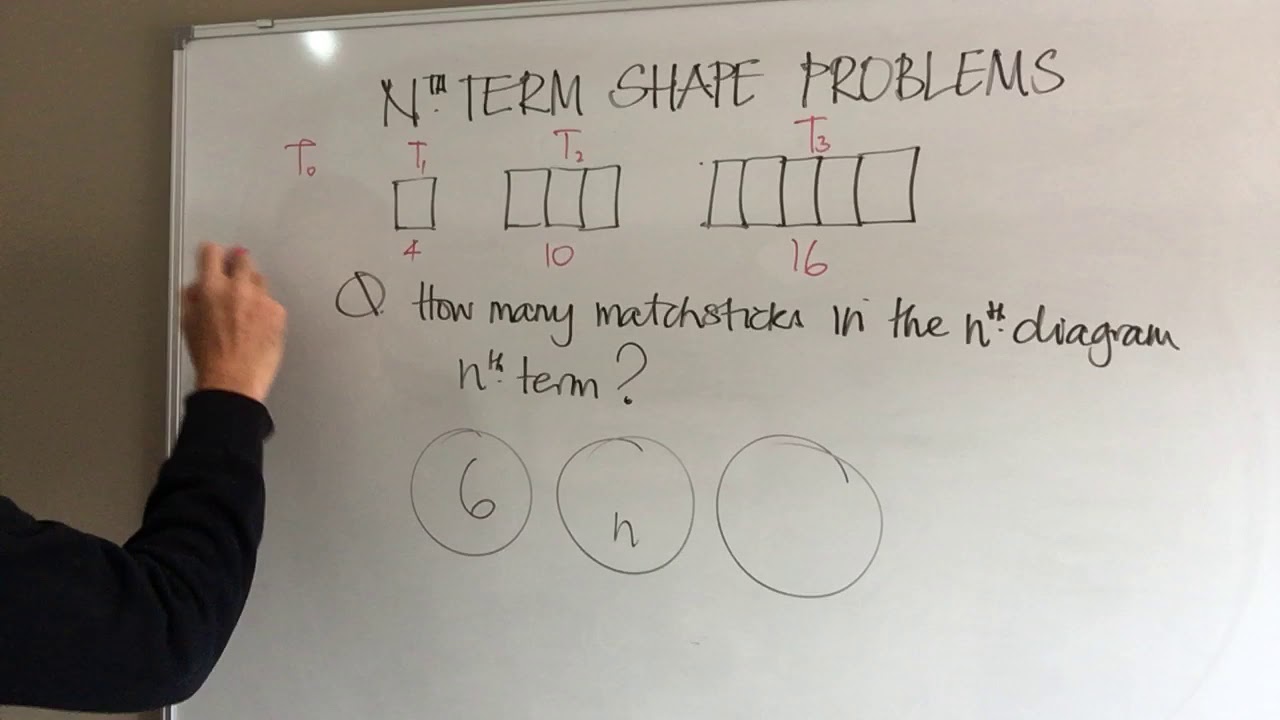 NTH TERM SHAPE PROBLEMS
T0 T1 T2 T3
4 10 16
Q. How many matchsticks in the nth. diagram
nth. term?
6 n